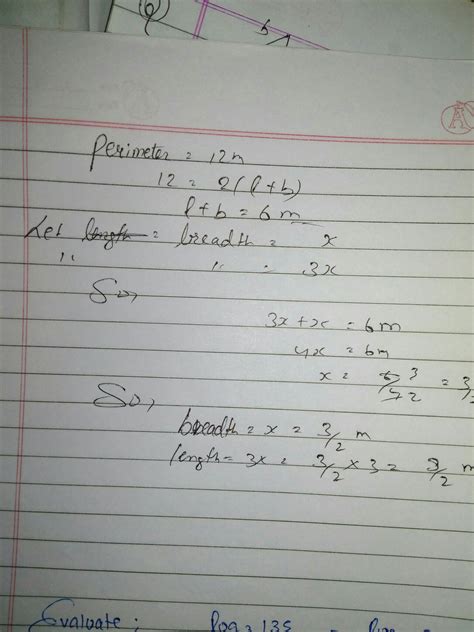 b
A
Perimeter = 12m
12 = 2(l+b)
l+b = 6m
Let length = breadth = x
" " = 3x
So,
3x+x = 6m
4x = 6m
x = 6/4 3/2 = 3/
So,
breadth = x = 3/2 m
length = 3x = 3/2 × 3 = 9/2 m
Evaluate :